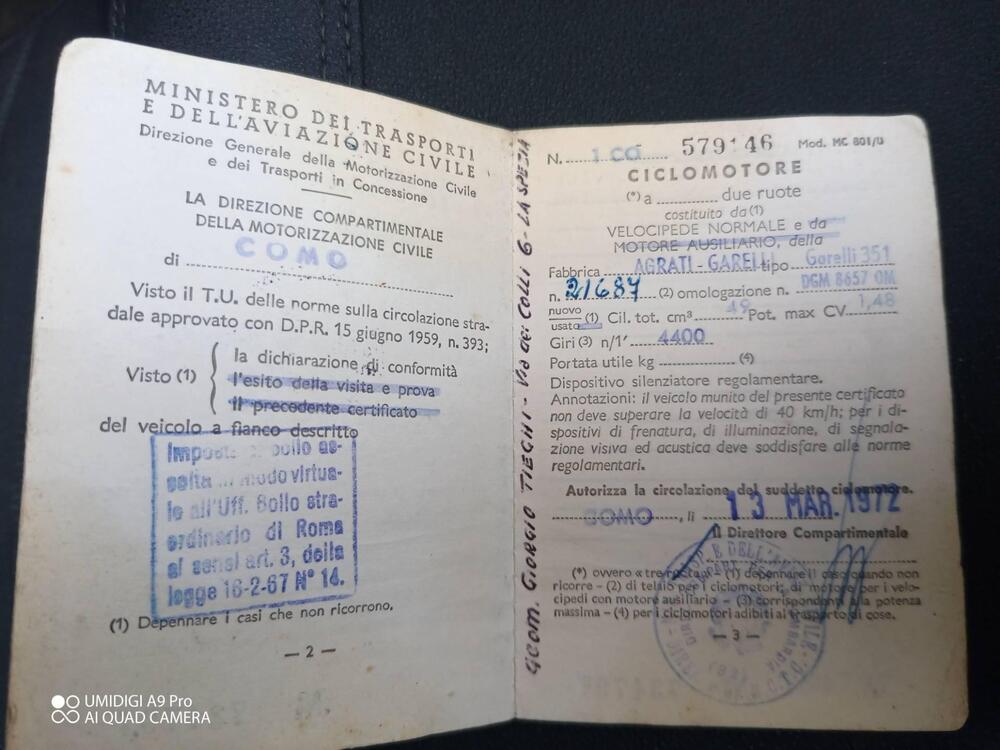 MINISTERO DEI TRASPORTI
E DELL'AVIAZIONE CIVILE
Direzione Generale della Motorizzazione Civile
e dei Trasporti in Concessione
LA DIREZIONE COMPARTIMENTALE
DELLA MOTORIZZAZIONE CIVILE
di COMO
Visto il T.U. delle norme sulla circolazione stra-
dale approvato con D.P.R. 15 giugno 1959, n. 393;
Visto (1)
la dichiarazione di conformità
l'esito della visita e prova
il precedente certificato
del veicolo a fianco descritto
Imposta bollo as-
solta in modo virtua-
le all'Uff. Bollo stra-
ordinario di Roma
ai sensi art. 3, della
legge 16-2-67 N° 14.
(1) Depennare i casi che non ricorrono.
— 2 —
GEOM. GIORGIO TIEGHI - VIA dei COLLI 6 - LA SPEZIA
N. 1 CO 579146 Mod. MC 801/U
CICLOMOTORE
(*) a due ruote
costituito da (1)
VELOCIPEDE NORMALE e da
MOTORE AUSILIARIO, della
Fabbrica AGRATI - GARELLI tipo Garelli 351
n. 21687 (2) omologazione n. DGM 8657 OM
nuovo
usato (1) Cil. tot. cm³ 49 Pot. max CV 1,48
Giri (3) n/1' 4400
Portata utile kg (4)
Dispositivo silenziatore regolamentare.
Annotazioni: il veicolo munito del presente certificato
non deve superare la velocità di 40 km/h; per i di-
spositivi di frenatura, di illuminazione, di segnala-
zione visiva ed acustica deve soddisfare alle norme
regolamentari.
Autorizza la circolazione del suddetto ciclomotore.
COMO, li 13 MAR. 1972
Il Direttore Compartimentale
(*) ovvero «tre ruote» - (1) depennare il caso quando non
ricorre - (2) di telaio per i ciclomotori; di motore per i velo-
cipedi con motore ausiliario - (3) corrispondenti alla potenza
massima - (4) per i ciclomotori adibiti al trasporto di cose.
— 3 —
UMIDIGI A9 Pro
AI QUAD CAMERA